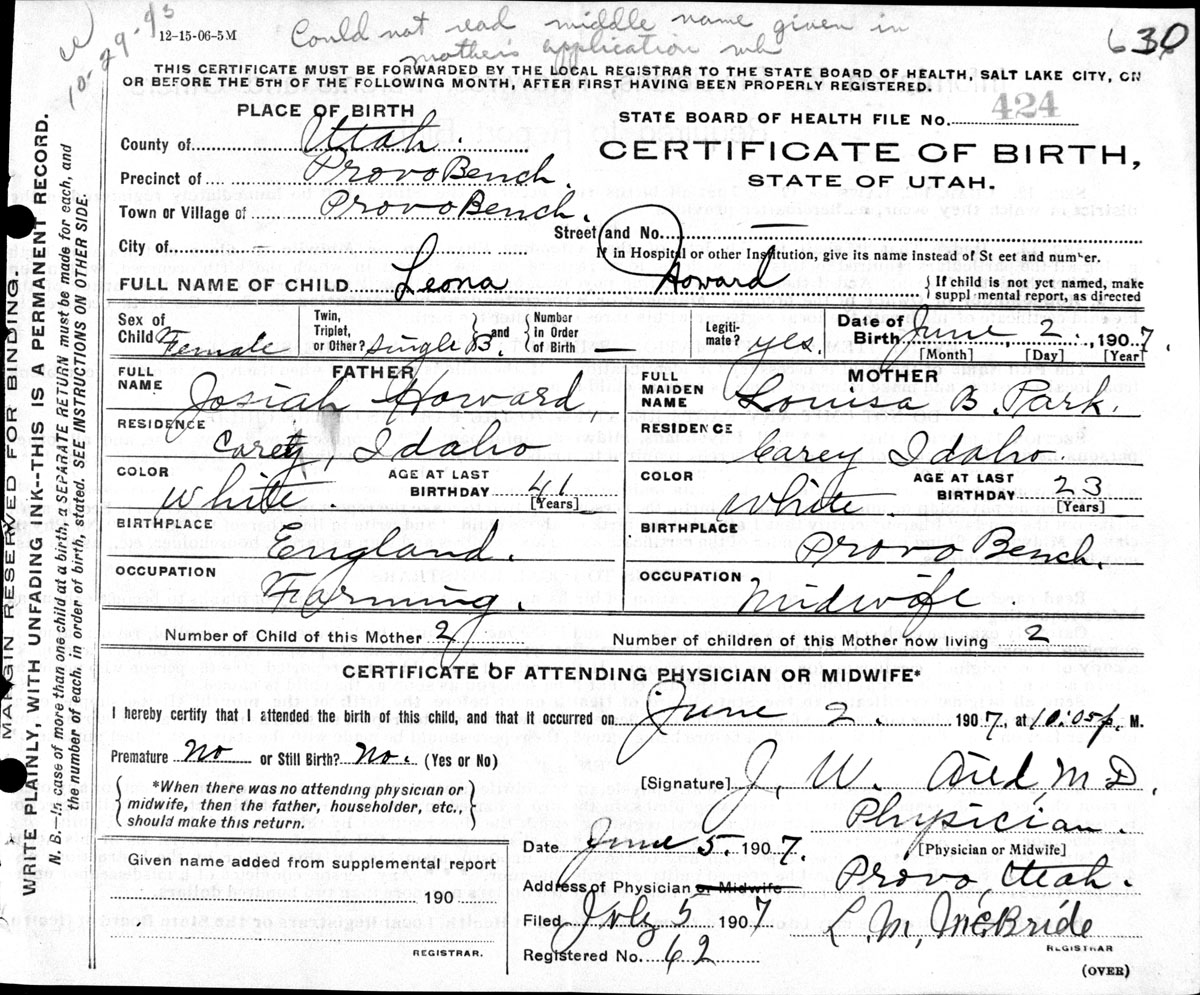 10-29-43
12-15-06-5M
Could not read middle name given in
mother's application
630
THIS CERTIFICATE MUST BE FORWARDED BY THE LOCAL REGISTRAR TO THE STATE BOARD OF HEALTH, SALT LAKE CITY, ON
OR BEFORE THE 5TH OF THE FOLLOWING MONTH, AFTER FIRST HAVING BEEN PROPERLY REGISTERED.
PLACE OF BIRTH
STATE BOARD OF HEALTH FILE NO. 424
County of Utah.
CERTIFICATE OF BIRTH,
STATE OF UTAH.
Precinct of Provo Bench.
Town or Village of Provo Bench.
Street and No. —
City of —
If in Hospital or other Institution, give its name instead of St eet and number.
FULL NAME OF CHILD Leona Howard
If child is not yet named, make
suppl mental report, as directed
Sex of Child Female
Twin, Triplet, or Other? single 3. and Number in Order of Birth —
Legitimate? yes.
Date of Birth June, 2., 1907.
[Month] [Day] [Year]
FATHER
FULL NAME Josiah Howard,
RESIDENCE Carey, Idaho
COLOR White.
AGE AT LAST BIRTHDAY 41
[Years]
BIRTHPLACE England.
OCCUPATION Farming.
MOTHER
FULL MAIDEN NAME Louisa B. Park.
RESIDENCE Carey Idaho.
COLOR White.
AGE AT LAST BIRTHDAY 23
[Years]
BIRTHPLACE Provo Bench.
OCCUPATION Midwife.
Number of Child of this Mother 2
Number of children of this Mother now living 2
CERTIFICATE OF ATTENDING PHYSICIAN OR MIDWIFE*
I hereby certify that I attended the birth of this child, and that it occurred on June 2. 1907, at 10.05 p. M.
Premature No or Still Birth? No. (Yes or No)
*When there was no attending physician or
midwife, then the father, householder, etc.,
should make this return.
[Signature] J. W. Aird M.D.
Physician.
[Physician or Midwife]
Date June 5, 1907.
Address of Physician or Midwife Provo, Utah.
Filed July 5 1907
L. M. McBride
REGISTRAR
Registered No. 62
(OVER)
Given name added from supplemental report
190
REGISTRAR.
MARGIN RESERVED FOR BINDING.
WRITE PLAINLY, WITH UNFADING INK--THIS IS A PERMANENT RECORD.
N. B.—In case of more than one child at a birth, a SEPARATE RETURN must be made for each, and
the number of each, in order of birth, stated. SEE INSTRUCTIONS ON OTHER SIDE.